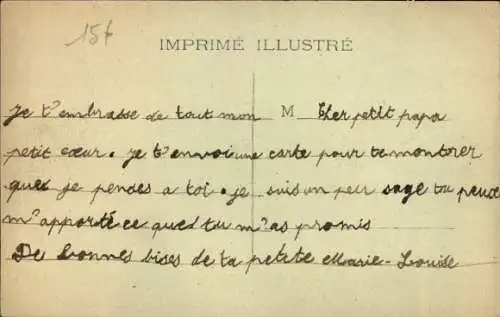 15f
IMPRIMÉ ILLUSTRÉ
M Cher petit papa
Je t'embrasse de tout mon
petit cœur. je t'envoi une carte pour te montrer
que je penses a toi. je suis un peu sage tu peux
m'apporté ce que tu m'as promis
De bonnes bises de ta petite Marie-Louise